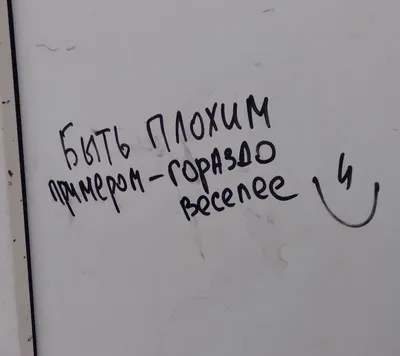 БЫТЬ ПЛОХИМ
примером - гораздо
веселее